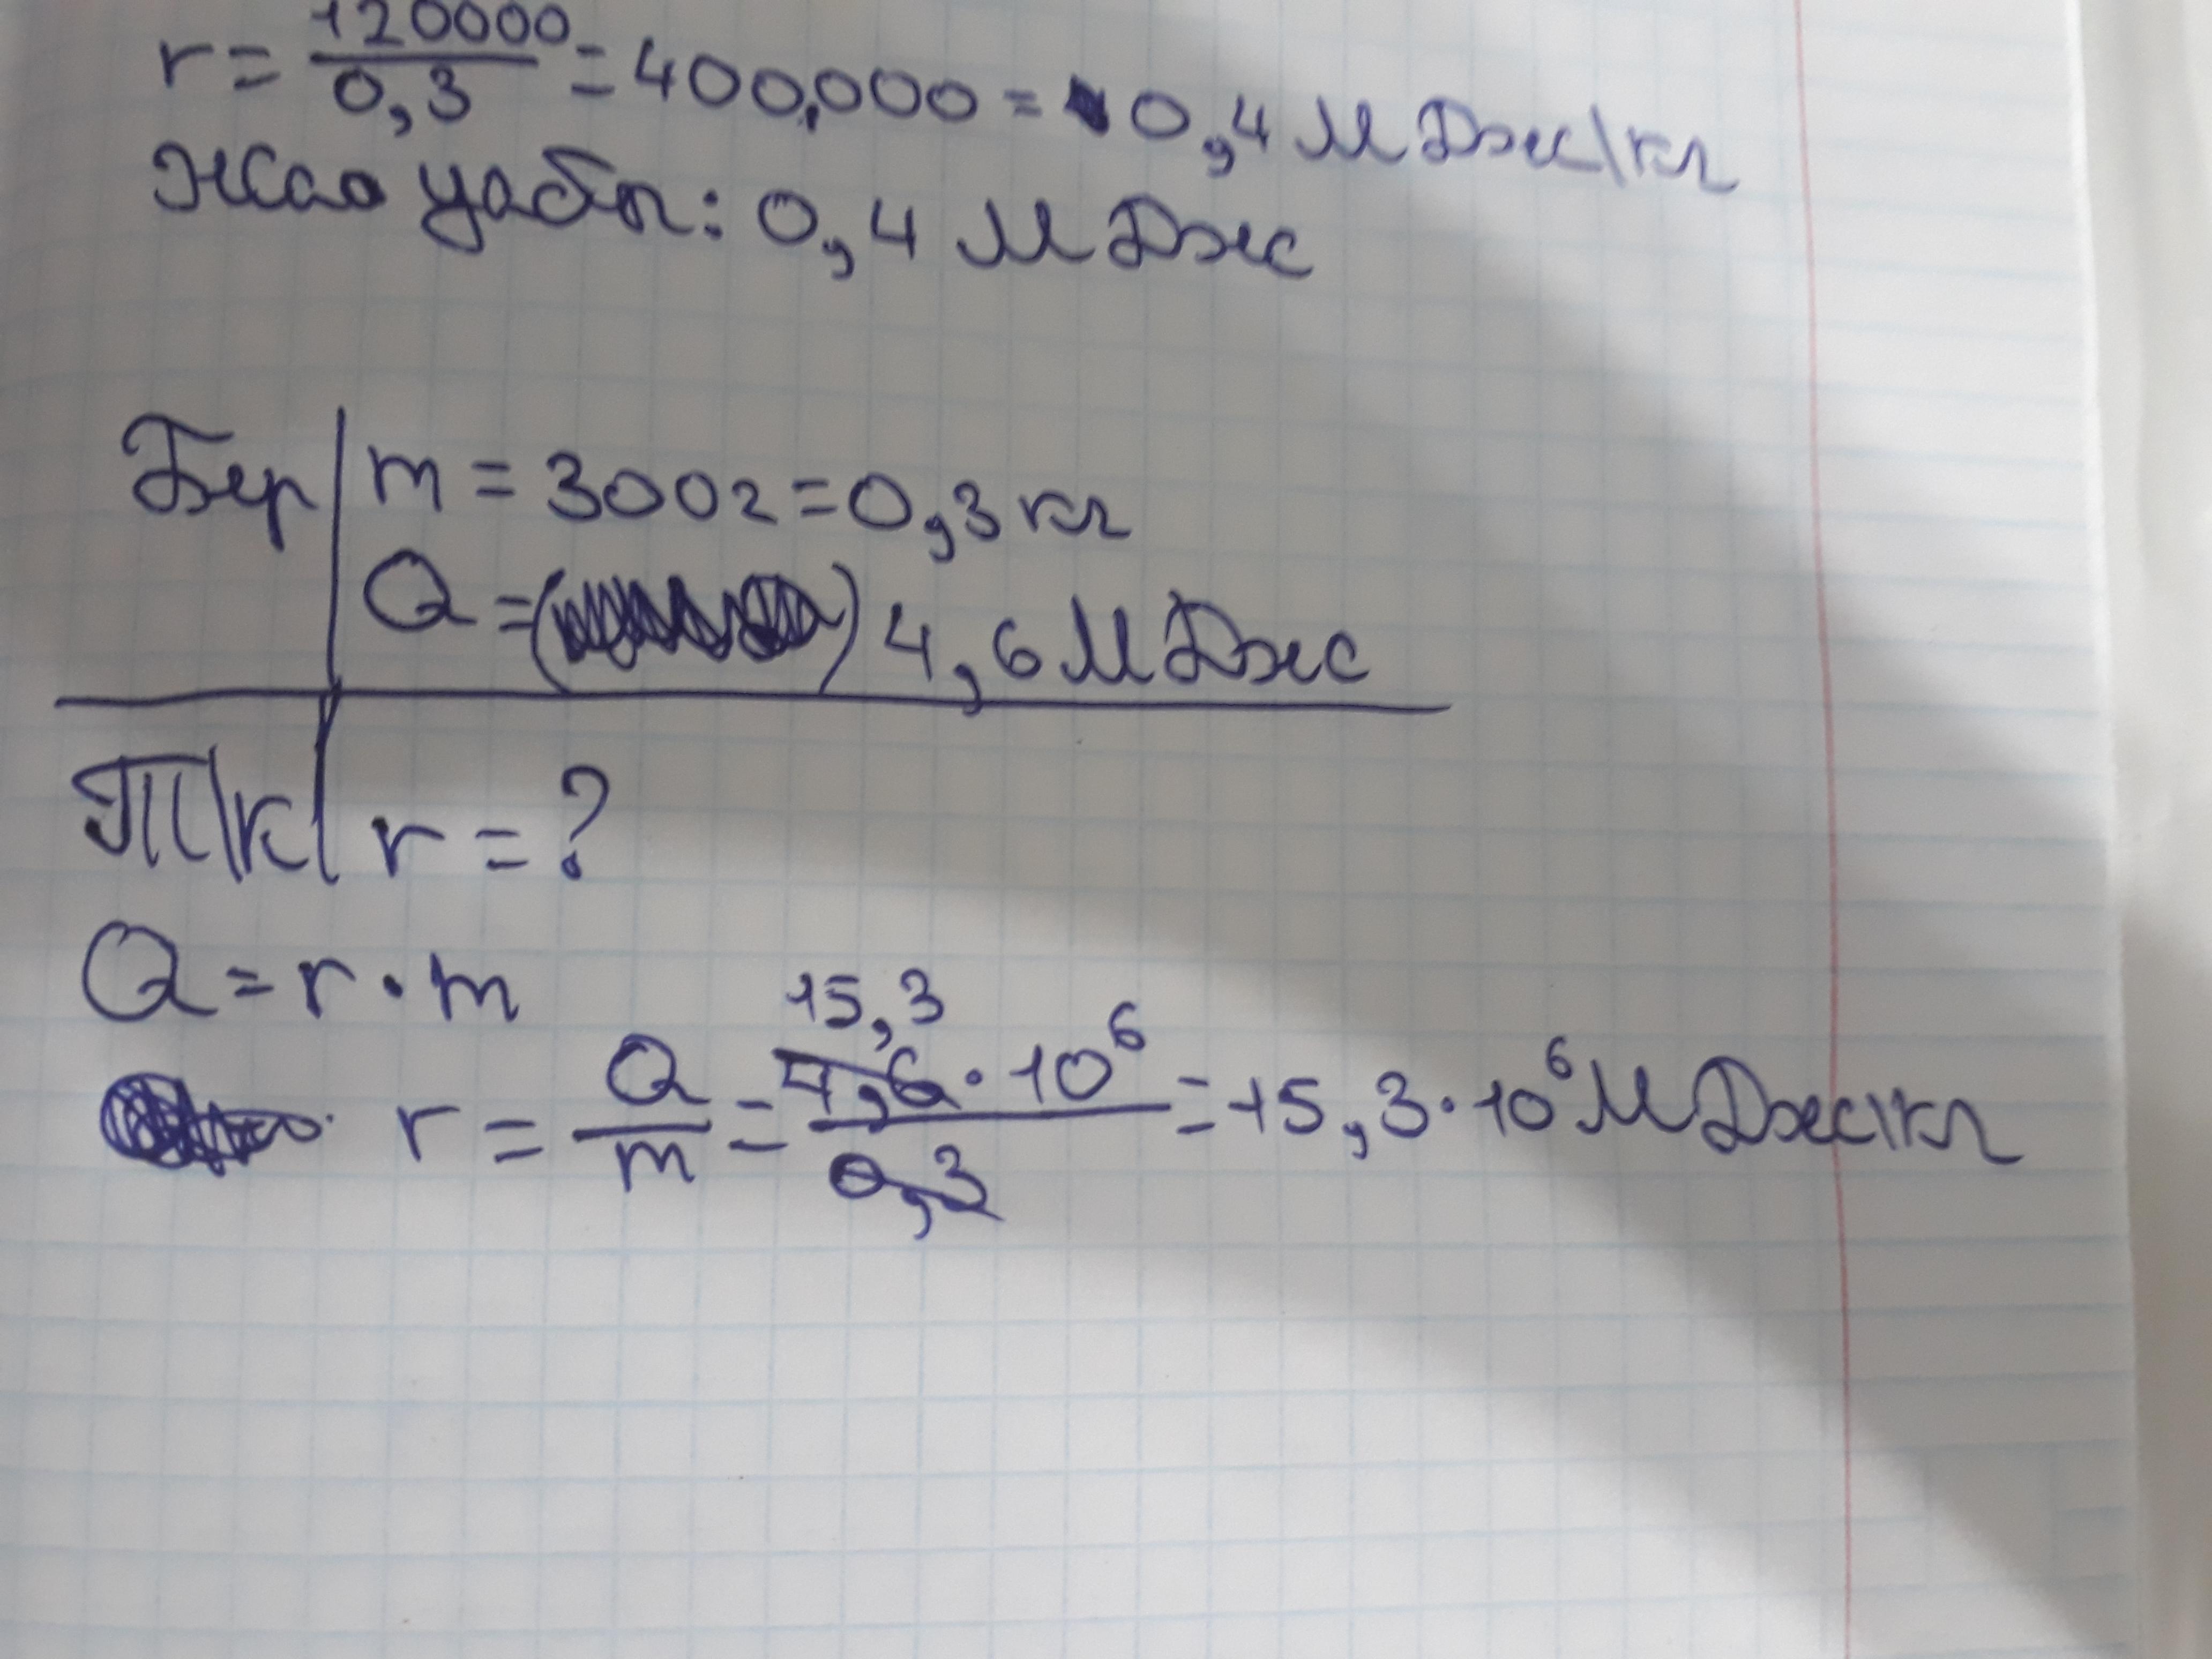 r = 120000 / 0,3 = 400,000 = 0,4 МДж\кг
Жообу: 0,4 МДж
Бер | m = 300г = 0,3 кг
Q = ( ) 4,6 МДж
Т\к | r = ?
Q = r · m
r = Q / m = 15,3 4,6 · 10⁶ / 0,3 = 15,3 · 10⁶ МДж\кг